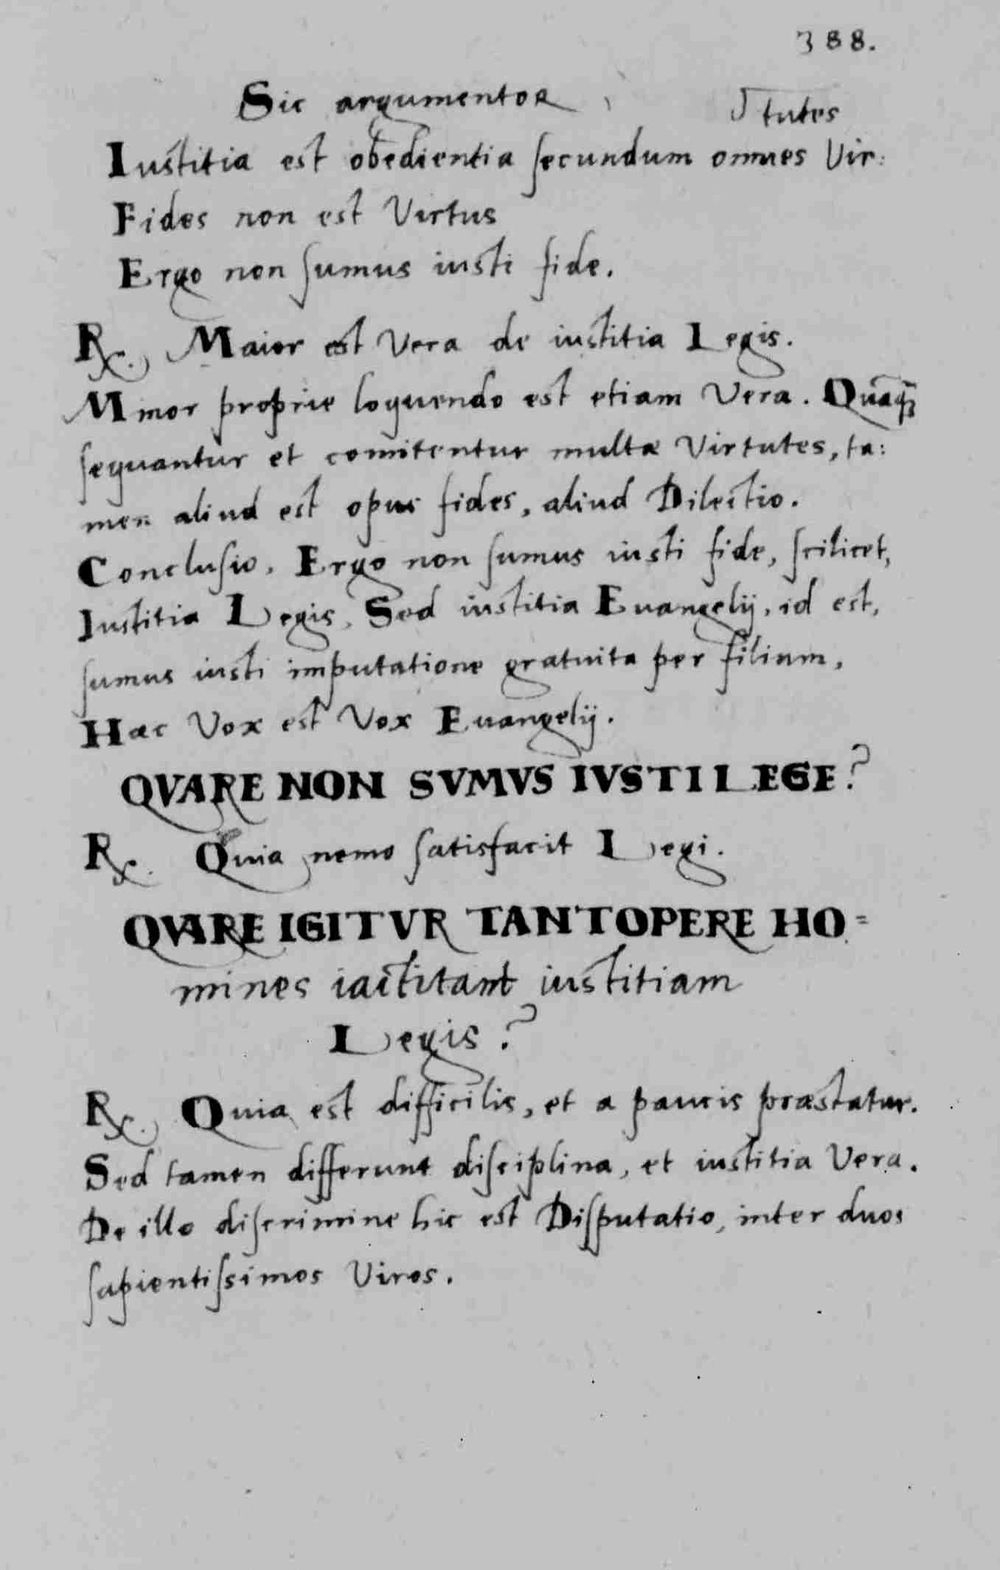 388.
Sic argumentor
tutes
Iustitia est obedientia secundum omnes Vir:
Fides non est Virtus
Ergo non sumus iusti fide.
R. Maior est Vera de iustitia Legis.
Minor proprie loquendo est etiam Vera. Quāqꝫ
sequantur et comitentur multæ Virtutes, ta:
men aliud est opus fides, aliud Dilectio.
Conclusio. Ergo non sumus iusti fide, scilicet,
Iustitia Legis. Sed iustitia Euangelij, id est,
sumus iusti imputatione gratuita per filium,
Hæc Vox est Vox Euangelij.
QVARE NON SVMVS IVSTI LEGE?
R. Quia nemo satisfacit Legi.
QVARE IGITVR TANTOPERE HO=
mines iactitant iustitiam
Legis?
R. Quia est difficilis, et a paucis præstatur.
Sed tamen differunt disciplina, et iustitia Vera.
De illo discrimine hic est Disputatio, inter duos
sapientissimos Viros.